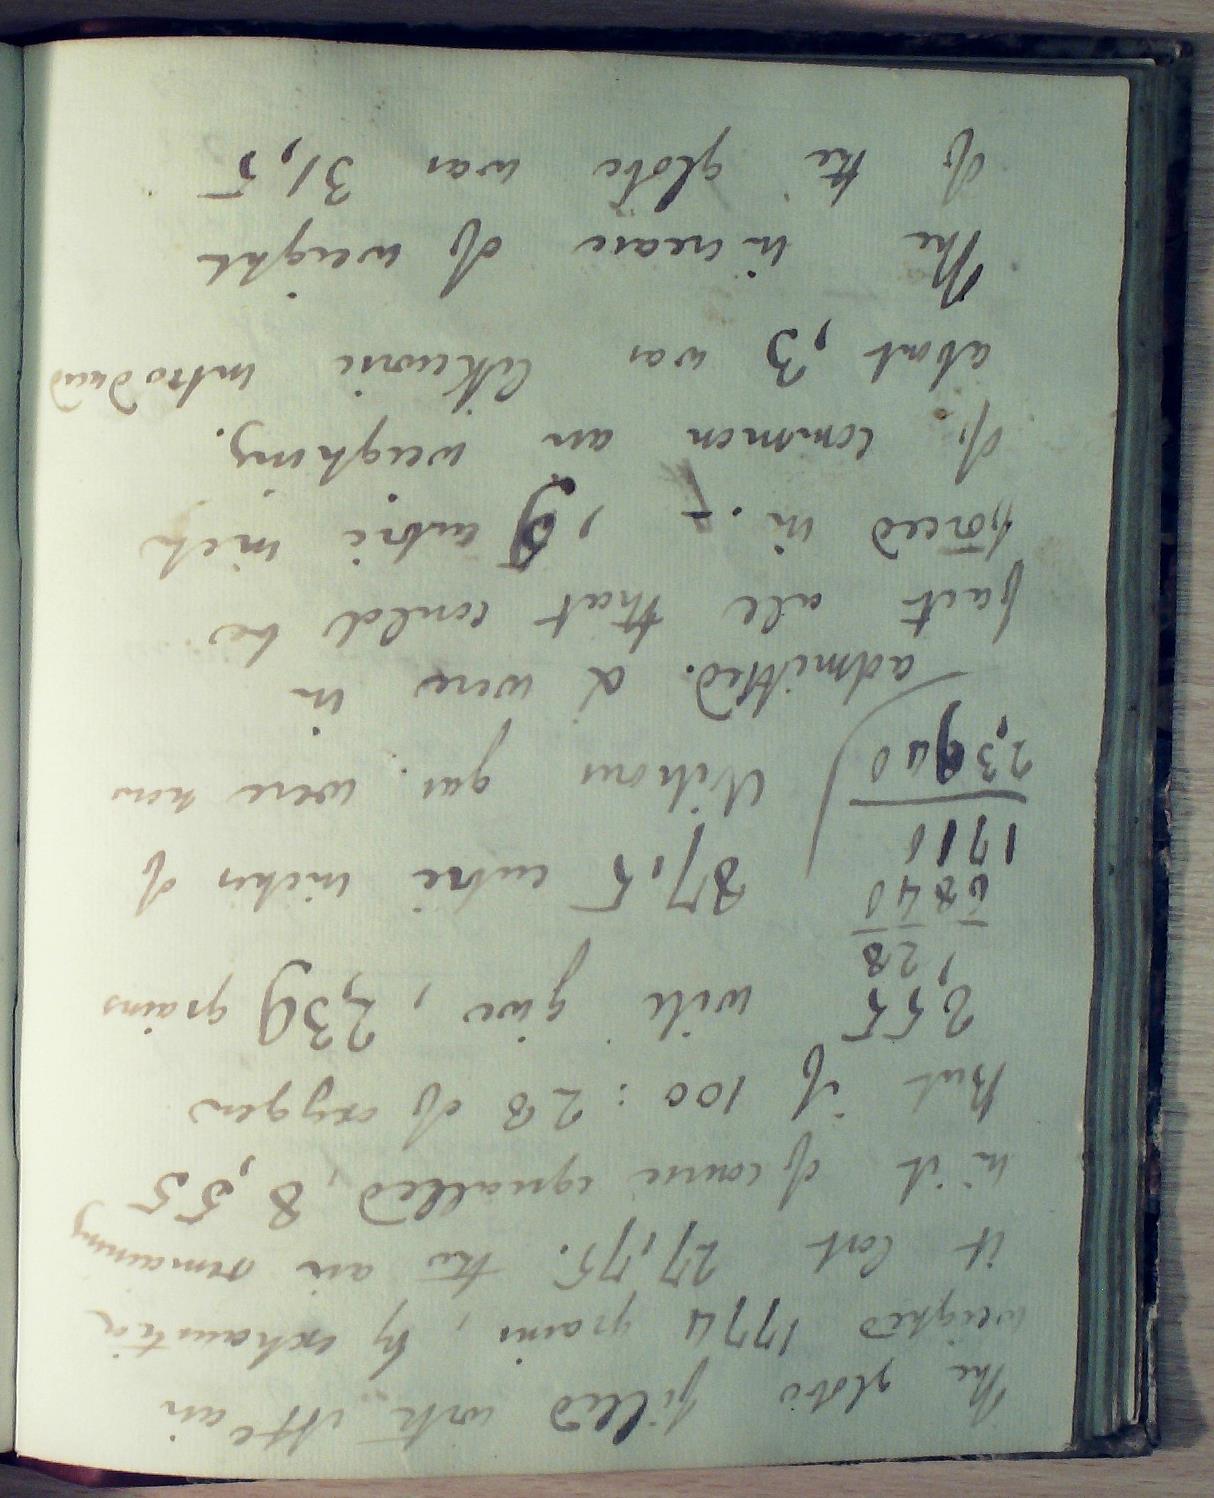 The globe filled with atte air
weighed 1774 grains, by exhaustion
it lost 27,75. the air remaining
in it of course equalled, 8,55
But if 100 : 28 of oxygen
8,55 will give, 2,39 grains
,28
6840
1710
2,3940
87,5 cubic inches of
Nitrous gas. were now
admitted. & were in
fact all that could be
forced in. - ,9 cubic inch
of common air weighing.
about ,3 was likewise introduced
The increase of weight
of the globe was 31,5